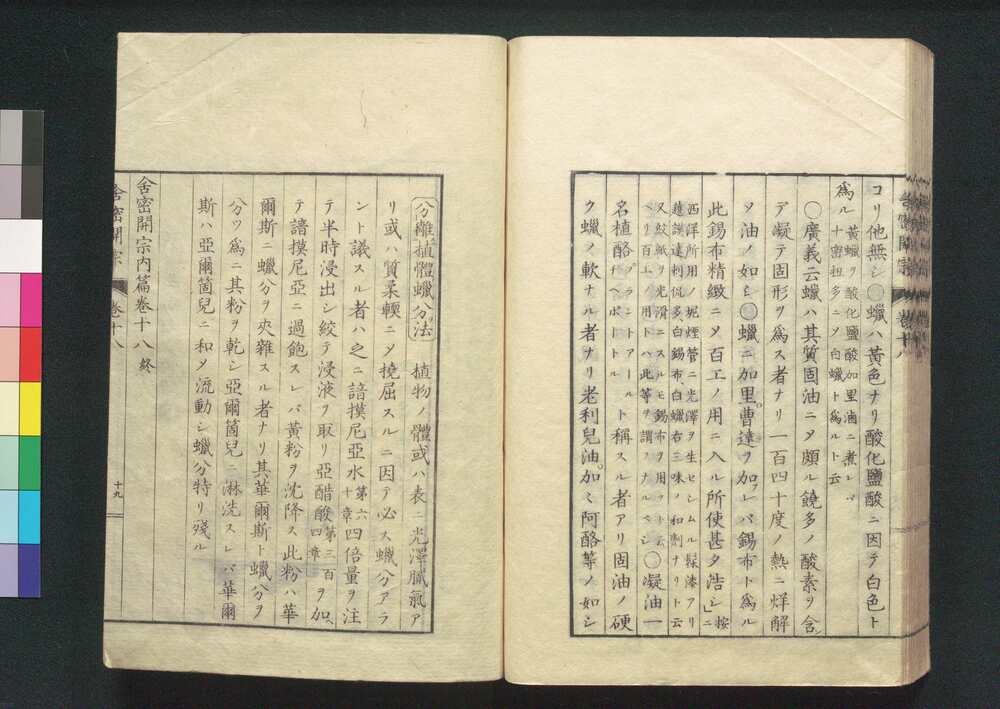 コリ他無シ◯蠟ハ黃色ナリ酸化鹽酸ニ因テ白色ト
爲ル 黃蠟ヲ酸化鹽酸加里滷ニ煮レバ
十密扭多ニメ白蠟ト爲ルト云
◯廣義云蠟ハ其質固油ニメ頗ル饒多ノ酸素ヲ含ン
デ凝テ固形ヲ爲ス者ナリ一百四十度ノ熱ニ烊解
ソ油ノ如シ◯蠟ニ加里曹達ヲ加レバ錫布ト爲ル
此錫布精緻ニメ百工ノ用ニ入ル所使甚タ浩シ」按ニ
西洋所用ノ坭煙管ニ光澤ヲ生セシムル髹漆アリ
白錫布、白蠟右三味ノ和劑ナリト云
又紋紙ヲ光滑ニスルモ錫布ヲ用ット云
ベリ百工ノ用トハ此等ヲ謂フナルベシ ◯凝油一
名植酪 プラントアールト
ゲベボートル 稱スル者アリ固油ノ硬
ク蠟ノ軟ナル者ナリ老利兒油。加々阿酪等ノ如シ
舍密開宗 卷十八
分離植體蠟分法 植物ノ體或ハ表ニ光澤膩氣ア
リ或ハ質柔輭ニメ撓屈スルニ因テ必ス蠟分アラ
ント議スル者ハ之ニ諳摸尼亞水 第六
十章 四倍量ヲ注
テ半時浸出シ絞テ浸液ヲ取リ亞醋酸 第三百
四章 ヲ加ヘ
テ諳摸尼亞ニ過飽スレバ黃粉ヲ沈降ス此粉ハ華
爾斯ニ蠟分ヲ夾雜スル者ナリ其華爾斯ト蠟分ヲ
分ツ爲ニ其粉ヲ乾シ亞爾箇兒ニ淋洗スレバ華爾
斯ハ亞爾箇兒ニ和メ流動シ蠟分特リ殘ル
舍密開宗内篇卷十八 終
舍密開宗 卷十八 十九